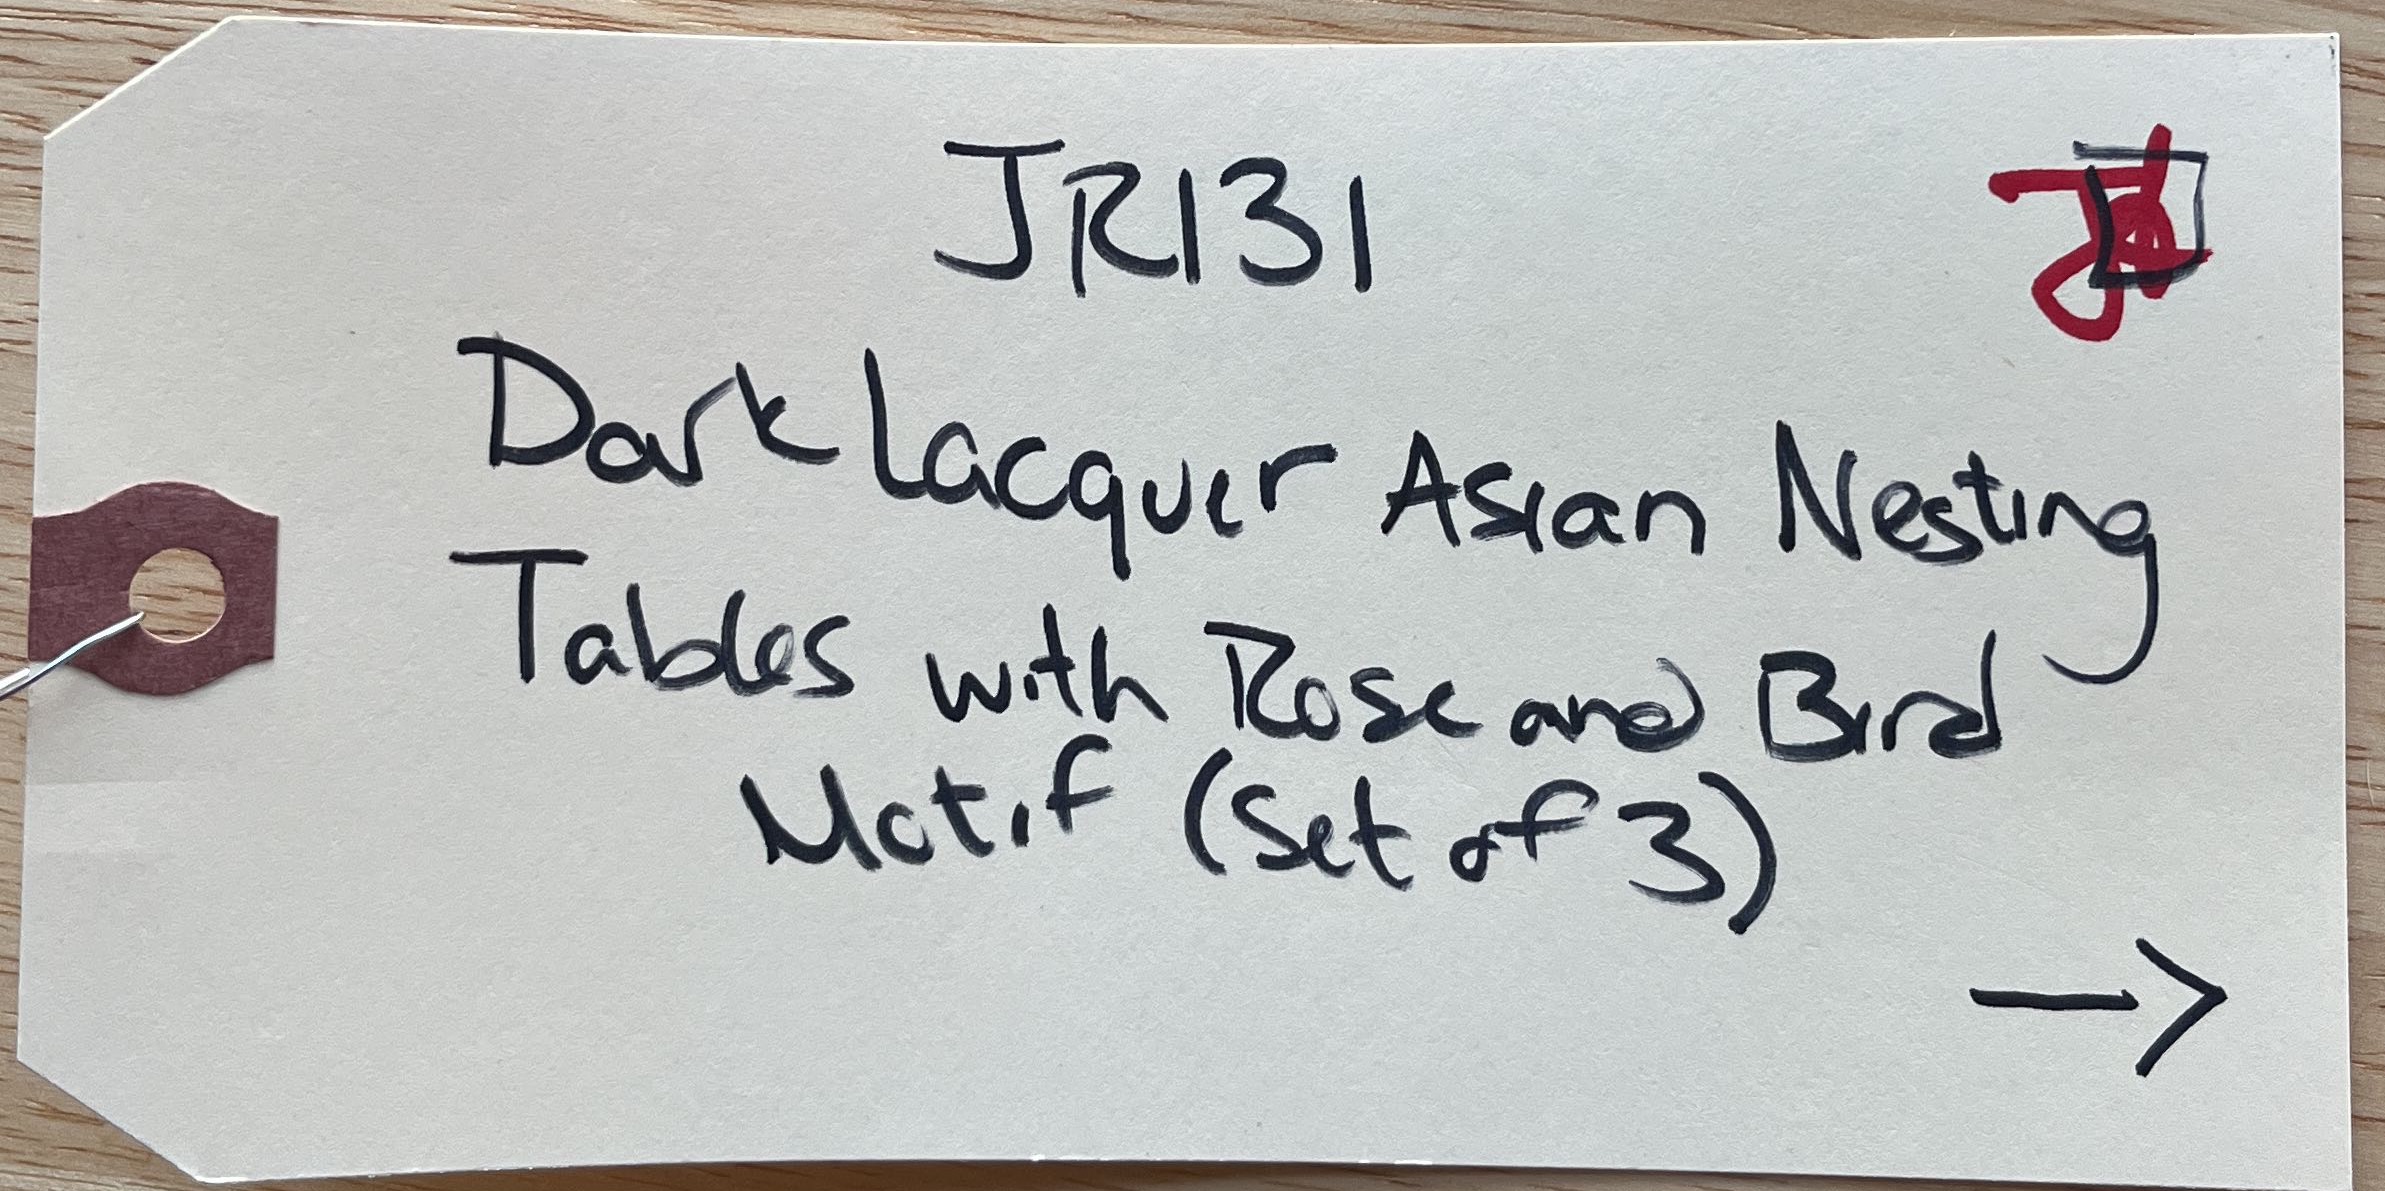 JR131
Dark Lacquer Asian Nesting
Tables with Rose and Bird
Motif (Set of 3)
→